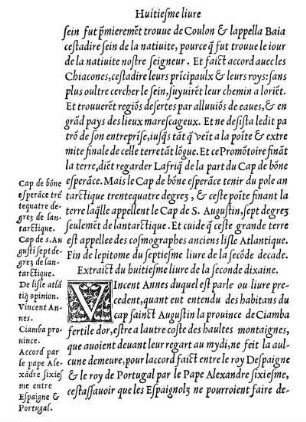 Huitiesme liure
sein fut p̃mieremẽt trouue de Coulon & lappella Baia
cestadire sein de la natiuite, pource q̃ fut trouue le iour
de la natiuite nostre seigneur. Et faict accord auec les
Chiacones, cestadire leurs p̃ncipaulx & leurs roys: sans
plus oultre cercher le sein, suyuirẽt leur chemin a loriẽt.
Et trouuerẽt regiõs desertes par alluuiõs de eaues, & en
grãd pays des lieux marescageux. Et ne desista ledit pa
trõ de son entreprise, iusq̃s tãt q̃ veit a la poĩte & extre
mite finale de celle terre tãt lõgue. Et ce Promõtoire finãt
la terre, diẽt regarder Lafriq̃ de la part du Cap de bõne
esperãce. Mais le Cap de bõne esperãce tenir du pole an
tarctique trentequatre degrez, & ceste poĩte finant la
terre laq̃lle appellent le Cap de S. Augustin, sept degrez
seulemẽt de lantarctique. Et cuide q̃ ceste grande terre
est appellee des cosmographes anciens lisle Atlantique.
Fin de lepitome du septiesme liure de la secõde decade.
Extraict du huitiesme liure de la seconde dixaine.
VIncent Annes duquel est parle ou liure pre
cedent, quant eut entendu des habitans du
cap sainct Augustin la prouince de Ciamba
fertile dor, estre a lautre coste des haultes montaignes,
que auoient deuant leur regart au mydi, ne feit la aul-
cune demeure, pour laccord faict entre le roy Despaigne
& le roy de Portugal par le Pape Alexandre sixiesme,
cestassauoir que les Espaignolz ne pourroient faire de-
Cap de bõne
esperãce trẽ
tequatre de-
grez de lan-
tarctique.
Cap de s. Au
gusti sept de-
grez de lan-
tarctique.
De lisle atlã
tiq̃ opinion.
Vincent An-
nes.
Ciamba pro-
uince.
Accord par
le pape Ale-
xãdre sixies-
me entre
Espaigne &
Portugal.